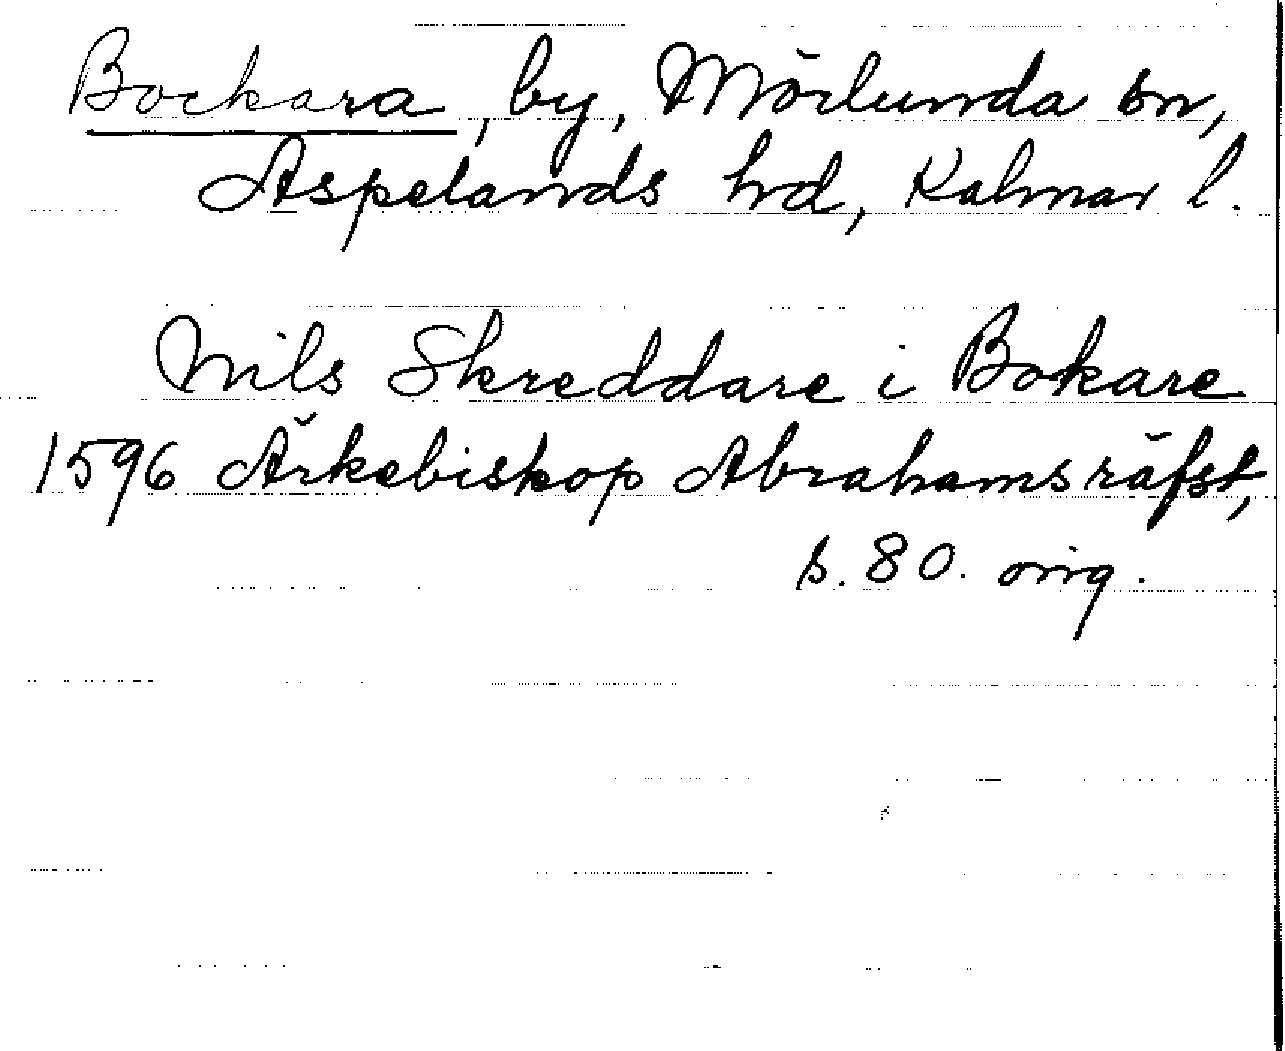 Bockara, by, Mörlunda sn,
Aspelands hd, Kalmar l.
Nils Skreddare i Bokare
1596 Ärkebiskop Abrahams räfst,
s. 80. orig.